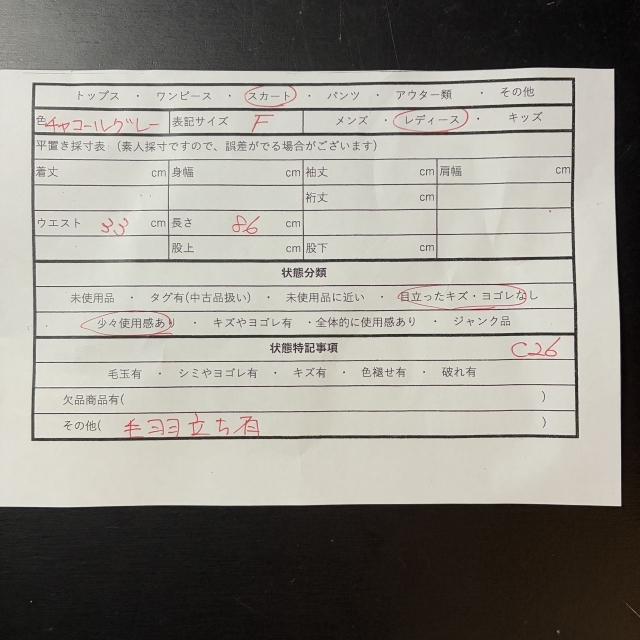 トップス ・ ワンピース ・ スカート ・ パンツ ・ アウター類 ・ その他
色 チャコールグレー 表記サイズ F メンズ ・ レディース ・ キッズ
平置き採寸表 (素人採寸ですので、誤差がでる場合がございます)
着丈 cm 身幅 cm 袖丈 cm 肩幅 cm
裄丈 cm
ウエスト 33 cm 長さ 86 cm
股上 cm 股下 cm
状態分類
未使用品 ・ タグ有(中古品扱い) ・ 未使用品に近い ・ 目立ったキズ・ヨゴレなし
・ 少々使用感あり ・ キズやヨゴレ有 ・全体的に使用感あり ・ ジャンク品
状態特記事項 C26
毛玉有 ・ シミやヨゴレ有 ・ キズ有 ・ 色褪せ有 ・ 破れ有
欠品商品有( )
その他( 毛羽立ち有 )